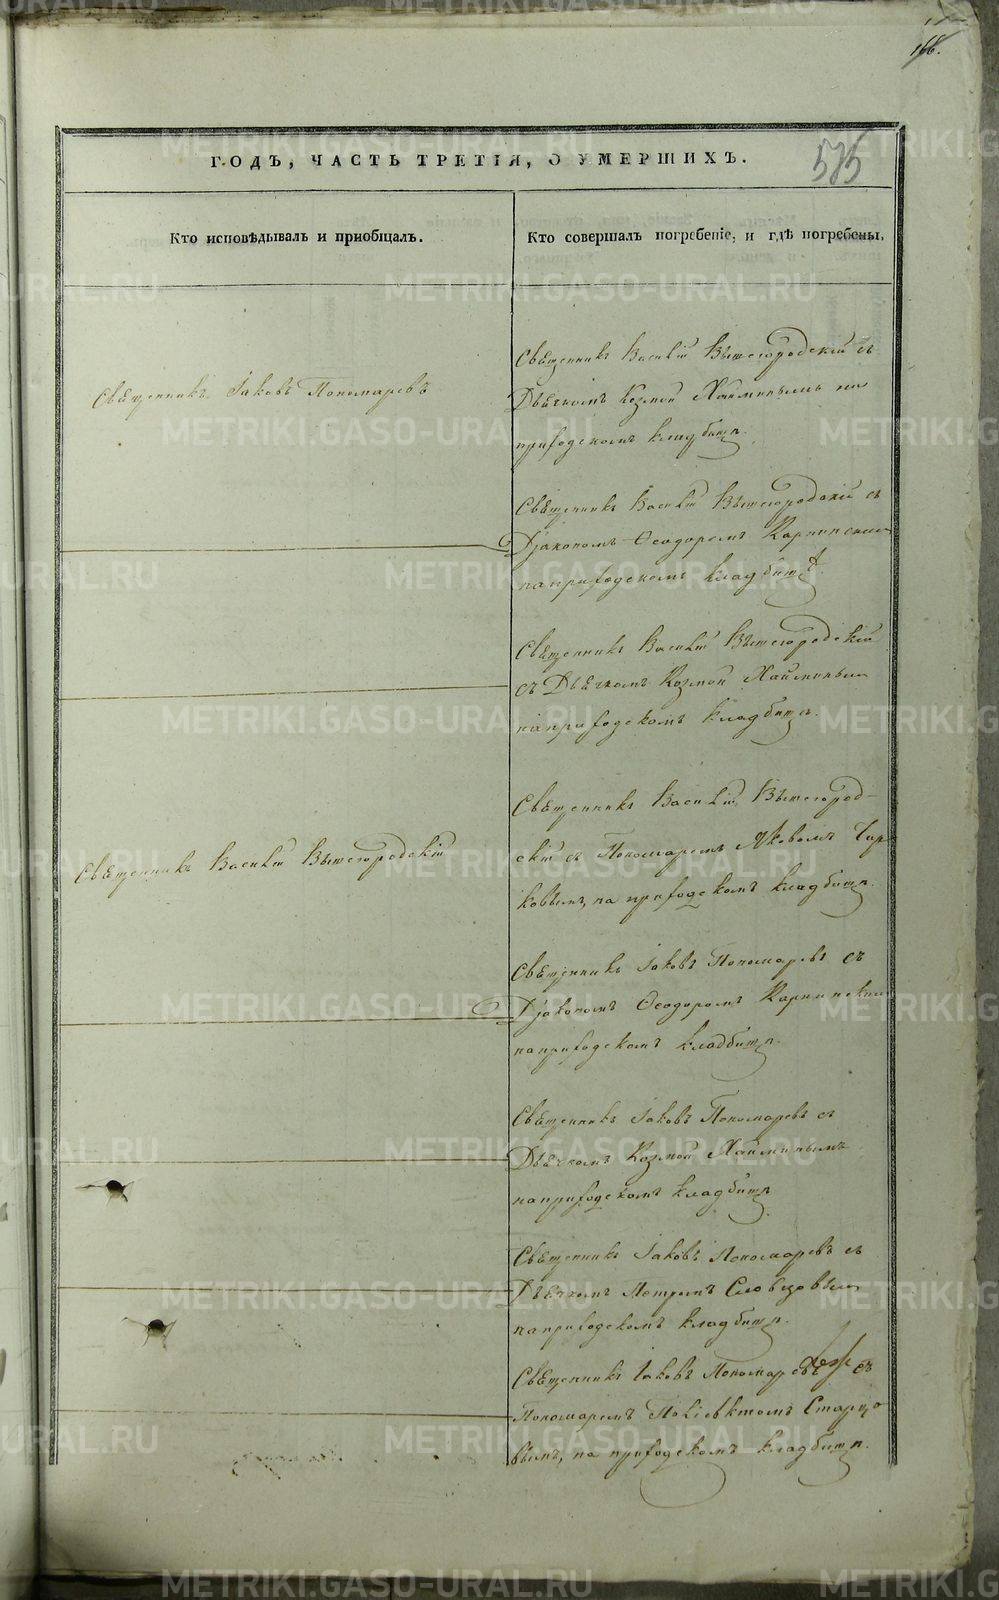 166.
575
ГОДЪ, ЧАСТЬ ТРЕТІЯ, О УМЕРШИХЪ.
Кто исповѣдывалъ и пріобщалъ.
Кто совершалъ погребеніе, и гдѣ погребены.
Священникъ Іаковъ Пономаревъ
Священникъ Василій Вышегородскій съ
Дьячкомъ Козмой Хайминымъ на
приходскомъ кладбищѣ.
Священникъ Василій Вышегородскій съ
Діакономъ Ѳеодоромъ Карпинскимъ
на приходскомъ кладбищѣ
Священникъ Василій Вышегородскій
съ Дьячкомъ Козмой Хайминымъ
на приходскомъ кладбищѣ.
Священникъ Василій Вышегородскій
Священникъ Василій Вышегород-
скій съ Пономаремъ Яковомъ Чир
ковымъ, на приходскомъ кладбищѣ.
Священникъ Іаковъ Пономаревъ съ
Діакономъ Ѳеодоромъ Карпинскимъ
на приходскомъ кладбищѣ.
Священникъ Іаковъ Пономаревъ съ
Дьячкомъ Козмой Хайминымъ
на приходскомъ кладбищѣ
Священникъ Іаковъ Пономаревъ съ
Дьячкомъ Петромъ Словцовымъ
на приходскомъ кладбищѣ.
Священникъ Іаковъ Пономаревъ съ
Пономаремъ Поліевктомъ Старцо
вымъ, на приходскомъ кладбищѣ.
METRIKI.GASO-URAL.RU